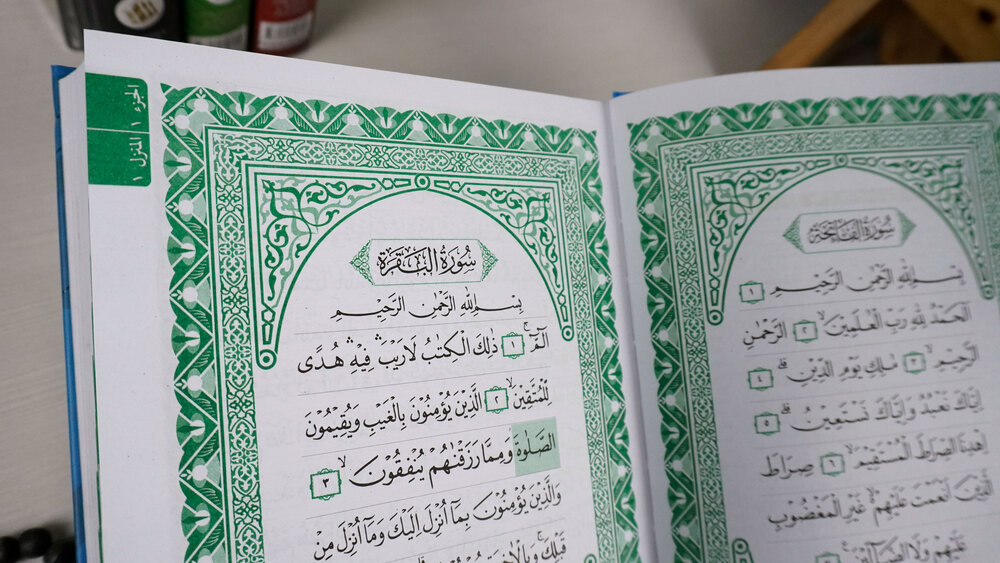 سُوْرَةُ الْفَاتِحَةِ
بِسْمِ اللهِ الرَّحْمٰنِ الرَّحِيْمِ ١
اَلْحَمْدُ لِلّٰهِ رَبِّ الْعٰلَمِيْنَۙ ٢ الرَّحْمٰنِ
الرَّحِيْمِۙ ٣ مٰلِكِ يَوْمِ الدِّيْنِۗ ٤
اِيَّاكَ نَعْبُدُ وَاِيَّاكَ نَسْتَعِيْنُۗ ٥
اِهْدِنَا الصِّرَاطَ الْمُسْتَقِيْمَۙ ٦ صِرَاطَ
الَّذِيْنَ اَنْعَمْتَ عَلَيْهِمْ ەۙ غَيْرِ الْمَغْضُوْبِ
عَلَيْهِمْ وَلَا الضَّاۤلِّيْنَ
الجزء ١
المنزل ١
سُوْرَةُ الْبَقَرَةِ
بِسْمِ اللهِ الرَّحْمٰنِ الرَّحِيْمِ
الۤمّۤۚ ١ ذٰلِكَ الْكِتٰبُ لَا رَيْبَۛ فِيْهِۛ هُدًى
لِّلْمُتَّقِيْنَۙ ٢ الَّذِيْنَ يُؤْمِنُوْنَ بِالْغَيْبِ وَيُقِيْمُوْنَ
الصَّلٰوةَ وَمِمَّا رَزَقْنٰهُمْ يُنْفِقُوْنَۙ ٣
وَالَّذِيْنَ يُؤْمِنُوْنَ بِمَآ اُنْزِلَ اِلَيْكَ وَمَآ اُنْزِلَ مِنْ
قَبْلِكَۚ